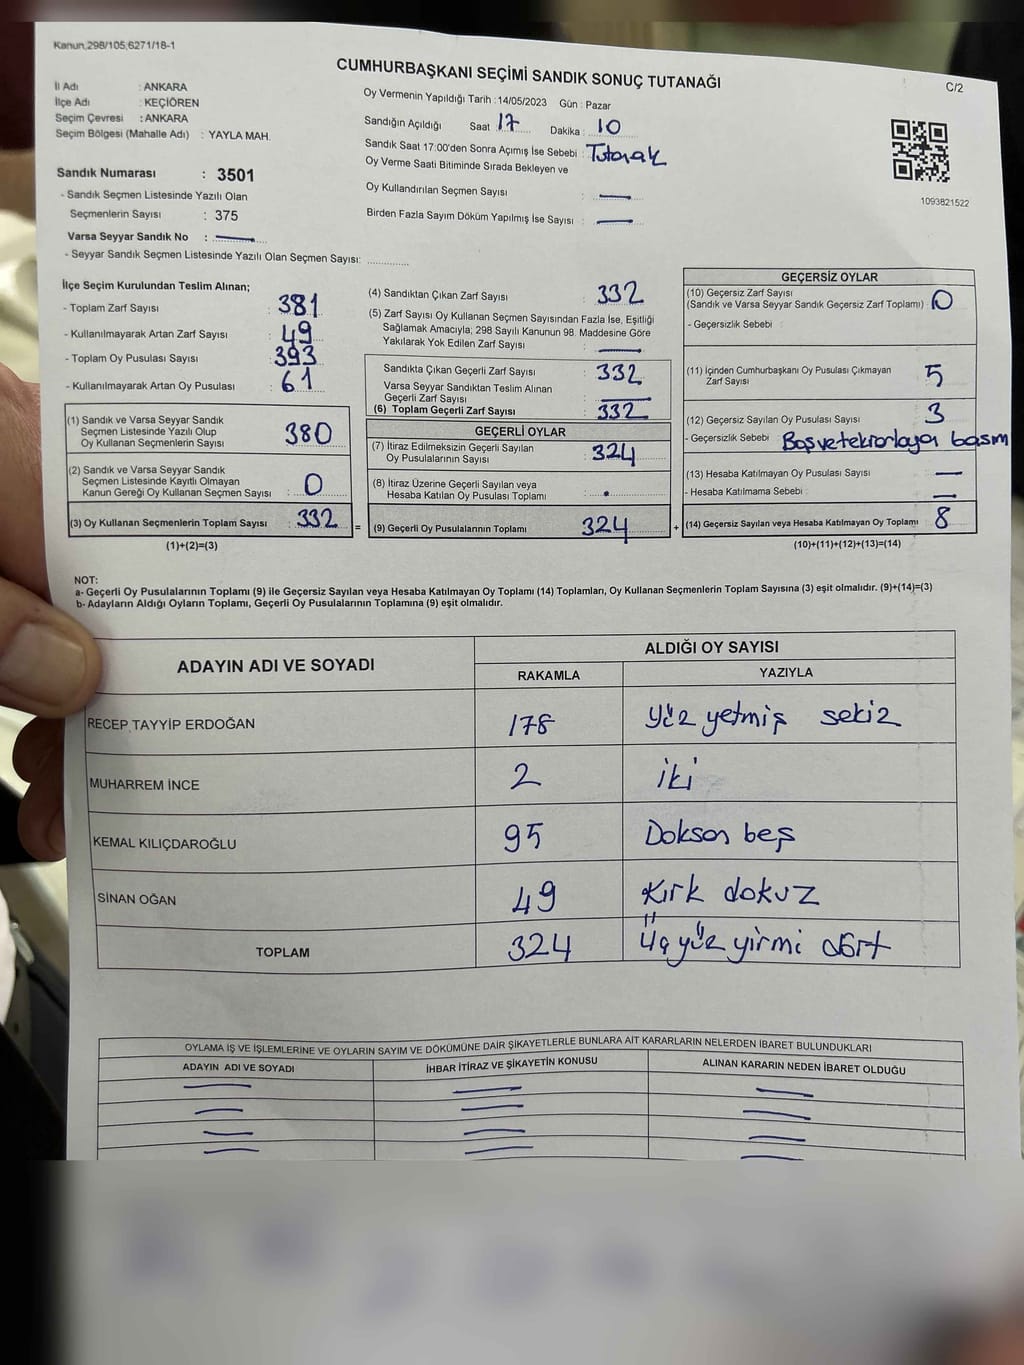 Kanun,298/105,6271/18-1
CUMHURBAŞKANI SEÇİMİ SANDIK SONUÇ TUTANAĞI
C/2
İl Adı : ANKARA
İlçe Adı : KEÇİÖREN
Seçim Çevresi : ANKARA
Seçim Bölgesi (Mahalle Adı) : YAYLA MAH.
Oy Vermenin Yapıldığı Tarih : 14/05/2023 Gün : Pazar
Sandığın Açıldığı Saat 17 Dakika : 10
Sandık Saat 17:00'den Sonra Açımış İse Sebebi : Tutanak
Oy Verme Saati Bitiminde Sırada Bekleyen ve
Oy Kullandırılan Seçmen Sayısı : —
Birden Fazla Sayım Döküm Yapılmış İse Sayısı : —
1093821522
Sandık Numarası : 3501
- Sandık Seçmen Listesinde Yazılı Olan
Seçmenlerin Sayısı : 375
Varsa Seyyar Sandık No : —
- Seyyar Sandık Seçmen Listesinde Yazılı Olan Seçmen Sayısı: ............
İlçe Seçim Kurulundan Teslim Alınan;
- Toplam Zarf Sayısı : 381
- Kullanılmayarak Artan Zarf Sayısı : 49
- Toplam Oy Pusulası Sayısı : 393
- Kullanılmayarak Artan Oy Pusulası : 61
(1) Sandık ve Varsa Seyyar Sandık
Seçmen Listesinde Yazılı Olup
Oy Kullanan Seçmenlerin Sayısı : 380
(2) Sandık ve Varsa Seyyar Sandık
Seçmen Listesinde Kayıtlı Olmayan
Kanun Gereği Oy Kullanan Seçmen Sayısı : 0
(3) Oy Kullanan Seçmenlerin Toplam Sayısı : 332 =
(1)+(2)=(3)
(4) Sandıktan Çıkan Zarf Sayısı : 332
(5) Zarf Sayısı Oy Kullanan Seçmen Sayısından Fazla İse, Eşitliği
Sağlamak Amacıyla; 298 Sayılı Kanunun 98. Maddesine Göre
Yakılarak Yok Edilen Zarf Sayısı : —
Sandıkta Çıkan Geçerli Zarf Sayısı : 332
Varsa Seyyar Sandıktan Teslim Alınan
Geçerli Zarf Sayısı : —
(6) Toplam Geçerli Zarf Sayısı : 332
GEÇERLİ OYLAR
(7) İtiraz Edilmeksizin Geçerli Sayılan
Oy Pusulalarının Sayısı : 324
(8) İtiraz Üzerine Geçerli Sayılan veya
Hesaba Katılan Oy Pusulası Toplamı : .
(9) Geçerli Oy Pusulalarının Toplamı : 324 +
GEÇERSİZ OYLAR
(10) Geçersiz Zarf Sayısı
(Sandık ve Varsa Seyyar Sandık Geçersiz Zarf Toplamı) : 0
- Geçersizlik Sebebi :
(11) İçinden Cumhurbaşkanı Oy Pusulası Çıkmayan
Zarf Sayısı : 5
(12) Geçersiz Sayılan Oy Pusulası Sayısı : 3
- Geçersizlik Sebebi : Boş ve tekrarlayan basım
(13) Hesaba Katılmayan Oy Pusulası Sayısı : —
- Hesaba Katılmama Sebebi : —
(14) Geçersiz Sayılan veya Hesaba Katılmayan Oy Toplamı : 8
(10)+(11)+(12)+(13)=(14)
NOT:
a- Geçerli Oy Pusulalarının Toplamı (9) ile Geçersiz Sayılan veya Hesaba Katılmayan Oy Toplamı (14) Toplamları, Oy Kullanan Seçmenlerin Toplam Sayısına (3) eşit olmalıdır. (9)+(14)=(3)
b- Adayların Aldığı Oyların Toplamı, Geçerli Oy Pusulalarının Toplamına (9) eşit olmalıdır.
ADAYIN ADI VE SOYADI ALDIĞI OY SAYISI
RAKAMLA YAZIYLA
RECEP TAYYİP ERDOĞAN 178 Yüz yetmiş sekiz
MUHARREM İNCE 2 iki
KEMAL KILIÇDAROĞLU 95 Doksan beş
SİNAN OĞAN 49 Kırk dokuz
TOPLAM 324 Üç yüz yirmi dört
OYLAMA İŞ VE İŞLEMLERİNE VE OYLARIN SAYIM VE DÖKÜMÜNE DAİR ŞİKAYETLERLE BUNLARA AİT KARARLARIN NELERDEN İBARET BULUNDUKLARI
ADAYIN ADI VE SOYADI İHBAR İTİRAZ VE ŞİKAYETİN KONUSU ALINAN KARARIN NEDEN İBARET OLDUĞU